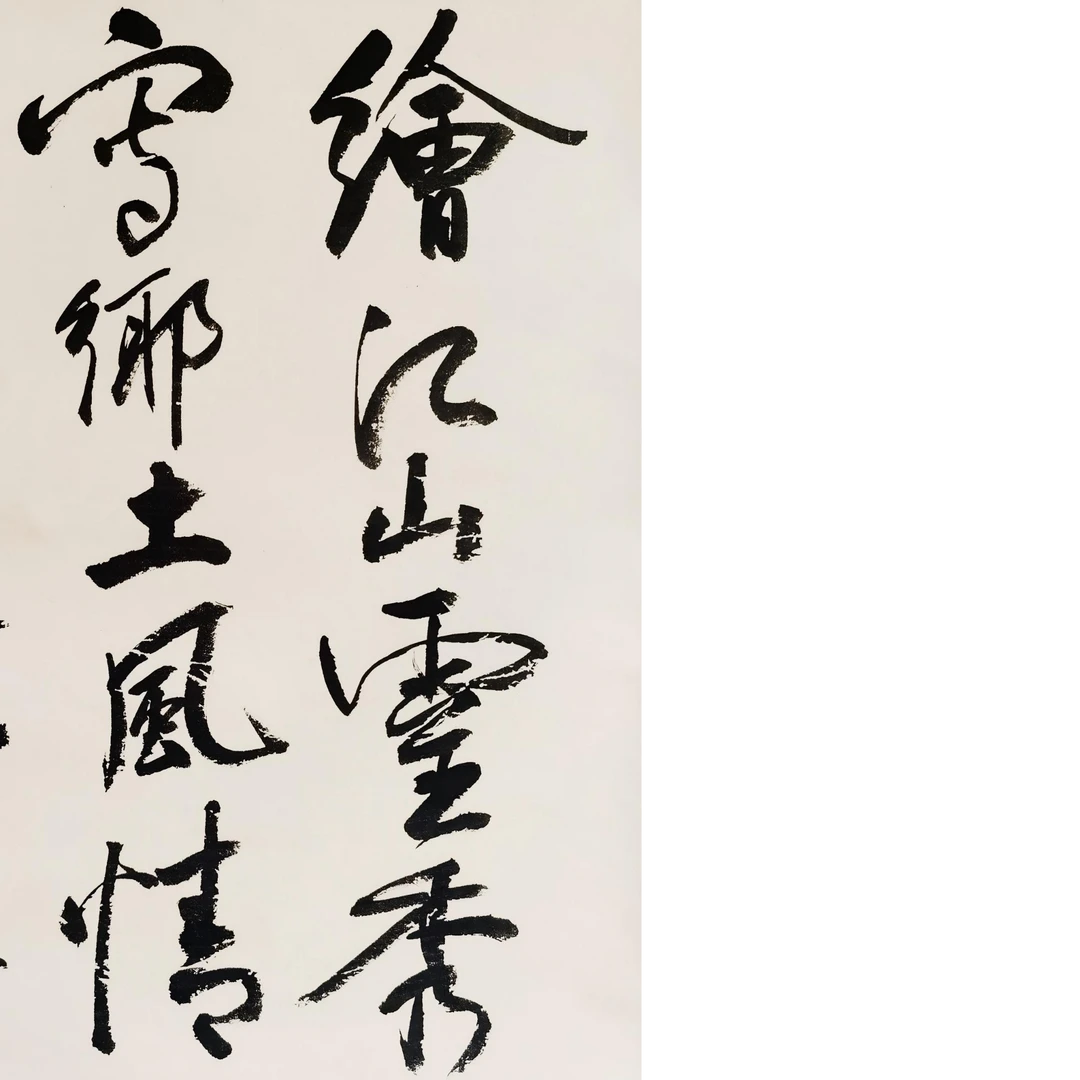 繪江山靈秀
寫鄉土風情